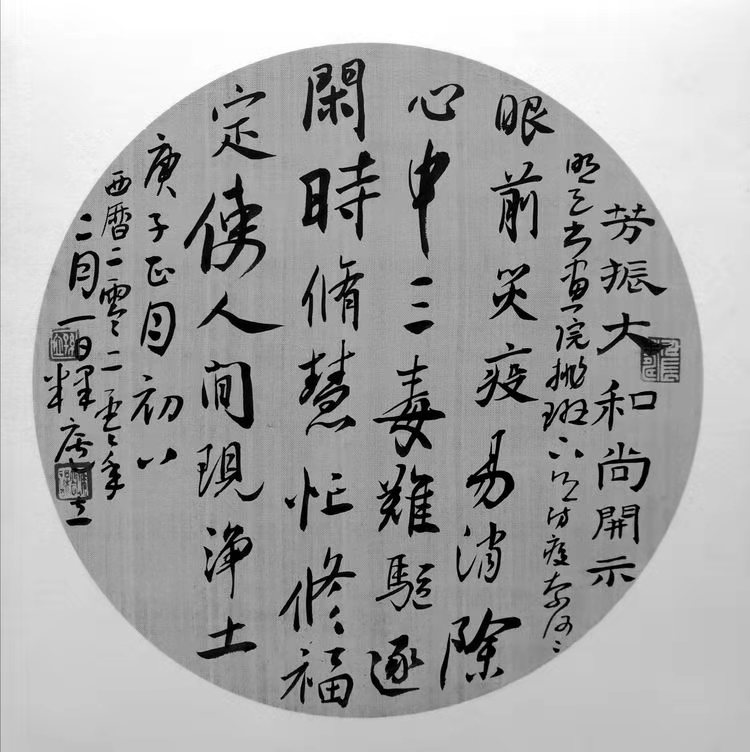 芳振大和尚開示
眼前災疫易消除
心中三毒難驅逐
閑時脩慧忙修福
定使人间現淨土
庚子正月初八
西曆二零二零年
二月一日釋